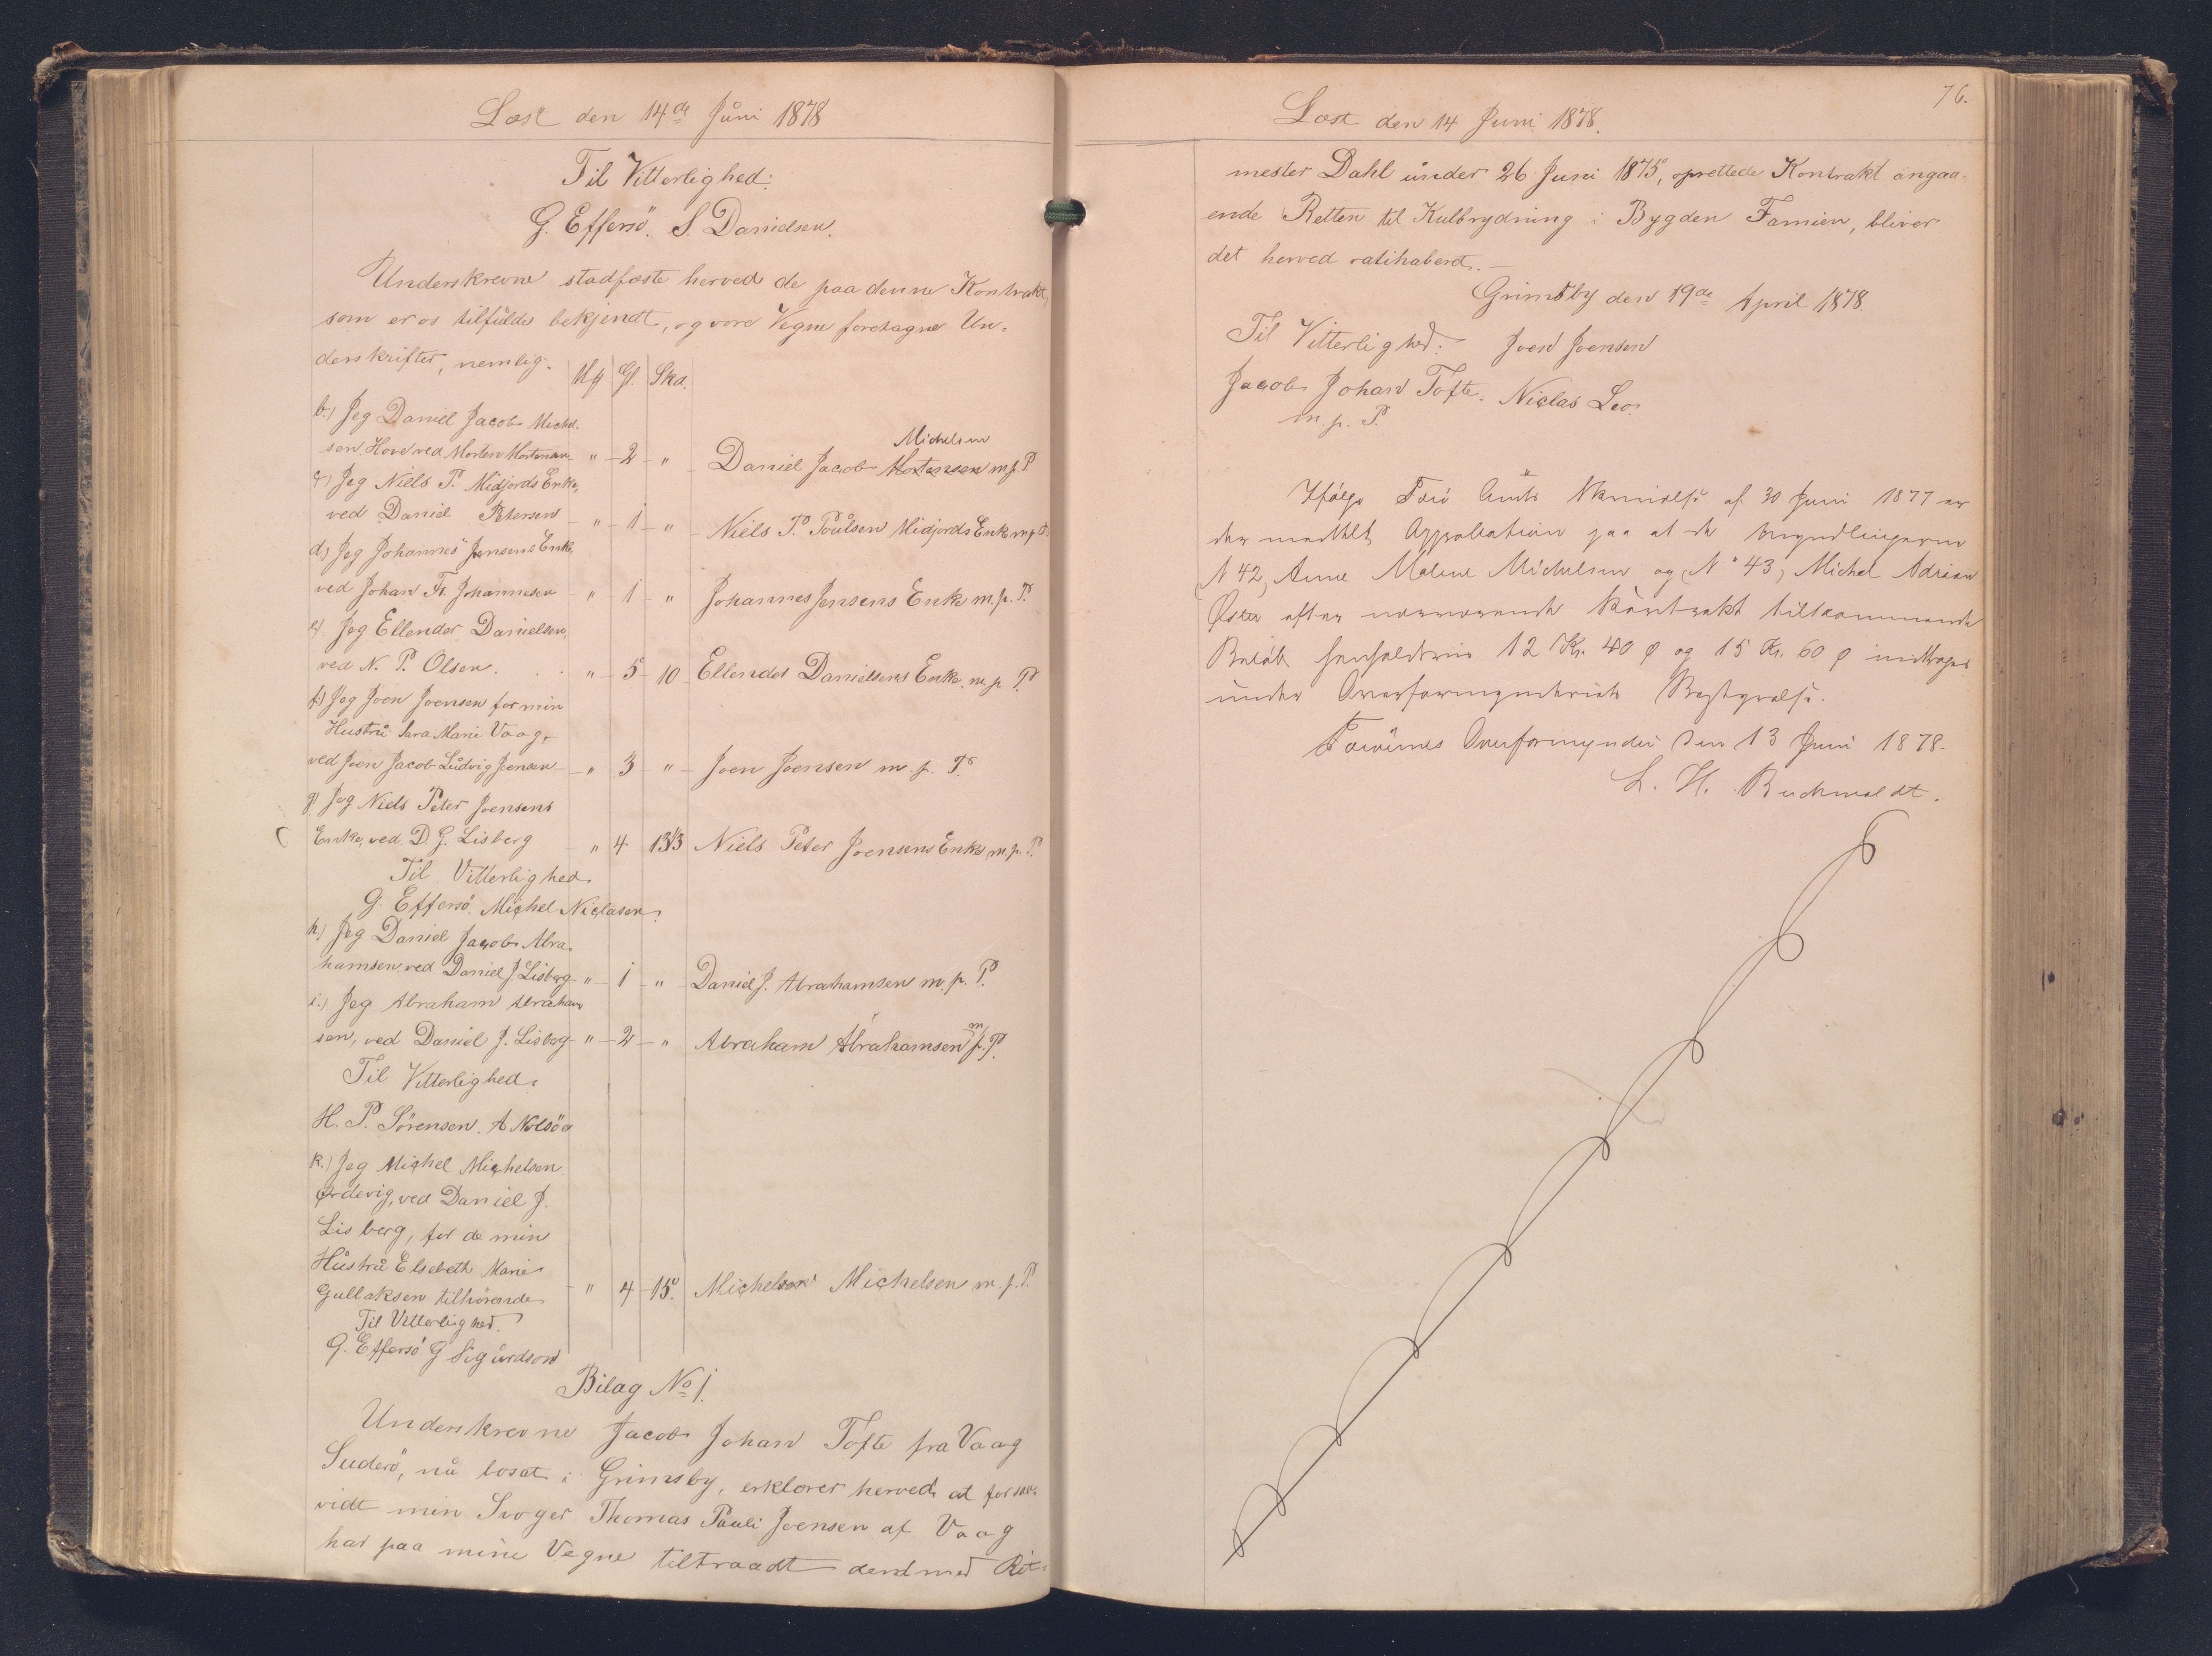 Læst den 14de Juni 1878
Til Vitterlighed:
G. Effersö. S. Danielsen.
Underskrevne stadfæste herved de paa denne Kontrakt,
som er os tilfulde bekjendt, og vore Vegne foretagne Un-
derskrifter, nemlig. Mg Gl. Skd.
b.) Jeg Daniel Jacob Michel-
sen, Hove ved Morten Mortensen " 2 " Daniel Jacob Mortensen Michelsen m.p.P.
c) Jeg Niels P. Midjords Enke,
ved Daniel Petersen " 1 " Niels P. Poulsen Midjords Enke m.p.P.
d) Jeg Johannes Jensens Enke,
ved Johan Fr. Johannesen " 1 " Johannes Jensens Enke m.p.P.
e). Jeg Ellender Danielsen,
ved N. P. Olsen. " 5 10 Ellender Danielsens Enke m.p.P.
f.) Jeg Joen Joensen for min
Hustru Sara Marie Vaag,
ved Joen Jacob Ludvig Joensen " 3 " Joen Joensen m.p.P.
g) Jeg Niels Peter Joensens
Enke, ved D. G. Lisberg " 4 13 1/3 Niels Peter Joensens Enke m.p.P.
Til Vitterlighed.
G. Effersö. Michel Niclasen.
h.) Jeg Daniel Jacob Abra-
hamsen, ved Daniel J. Lisberg " 1 " Daniel J. Abrahamsen m.p.P.
i.) Jeg Abraham Abraham-
sen, ved Daniel J. Lisberg " 2 " Abraham Abrahamsen m.p.P.
Til Vitterlighed.
H. P. Sörensen. A Nolsöe
k.) Jeg Michel Michelsen
Ørdevig, ved Daniel J.
Lisberg, for de min
Hustru Elsebeth Marie
Gullaksen tilhörende " 4 15. Michelsen Michelsen m.p.P.
Til Vitterlighed.
G. Effersö G Sigurdson
Bilag No 1.
Underskrevne Jacob Johan Tofte fra Vaag
Suderö, nu bosat i Grimsby, erklærer herved at forsaa-
vidt min Svoger Thomas Pauli Joensen af Vaag
har paa mine Vegne tiltraadt dend med Rit-
76.
Læst den 14 Juni 1878.
mester Dahl under 26 Juni 1875, oprettede Kontrakt angaa-
ende Retten til Kulbrydning i Bygden Famien, bliver
det herved ratihaberet.
Grimsby den 19de April 1878.
Til Vitterlighed: Joen Joensen
Jacob Johan Tofte. Niclas Leo.
m.p.P.
Ifölge Færö Amts Skrivelse af 30 Juni 1877 er
der meddelt Approbation paa at de Myndlingerne
(N 42) Anne Malene Michelsen og (No 43) Michel Adrian
Øster efter nærværende Kontrakt tilkommende
Belöb henholdsvis 12 Kr. 40 Ø og 15 Kr. 60 Ø inddrages
under Overformynderiets Bestyrelse.
Færöernes Overformynderi den 13 Juni 1878.
L. H. Buchwaldt.